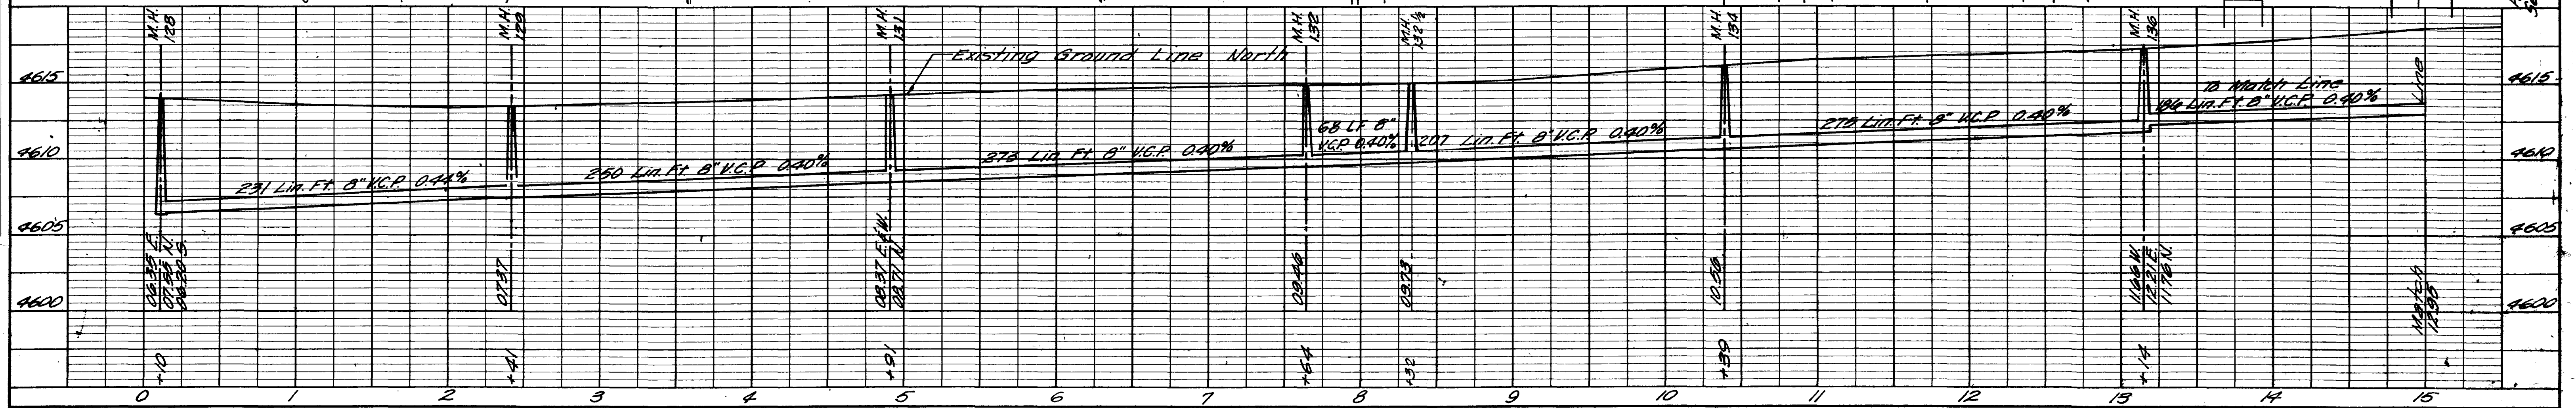 M.H. 128
M.H. 129
M.H. 131
M.H. 132
M.H. 132 ½
M.H. 134
M.H. 136
Existing Ground Line North
4615
4615
To Match Line
Line
186 Lin. Ft. 8" V.C.P. 0.40%
4610
231 Lin. Ft. 8" V.C.P. 0.44%
250 Lin. Ft. 8" V.C.P. 0.40%
273 Lin. Ft. 8" V.C.P. 0.40%
68 LF 8"
V.C.P. 0.40%
207 Lin. Ft. 8" V.C.P. 0.40%
275 Lin. Ft. 8" V.C.P. 0.40%
4610
4605
4605
06.35 E.
07.55 N.
06.20 S.
07.37
08.37 E.&W.
08.71 N.
09.46
09.73
10.56
11.66 W.
12.21 E.
11.76 N.
Match
12.95
4600
4600
+10
+41
+91
+64
+32
+39
+14
0 1 2 3 4 5 6 7 8 9 10 11 12 13 14 15